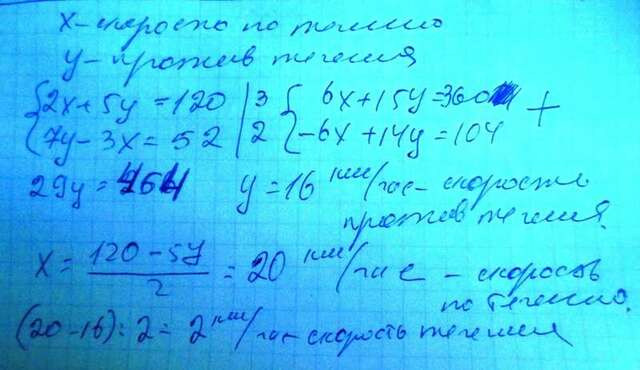 x - скорость по течению
y - против течения
{2x + 5y = 120 | 3 { 6x + 15y = 360 +
{7y - 3x = 52 | 2 { -6x + 14y = 104
29y = 464 y = 16 км/час - скорость
против течения.
x = (120 - 5y)/2 = 20 км/час - скорость
по течению.
(20 - 16) : 2 = 2 км/час - скорость течения